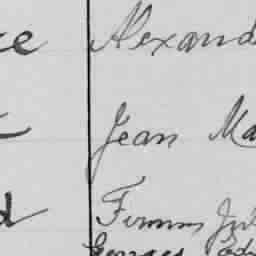 ce Alexand
Jean Ma
d Firmin Jul
Georges Ed